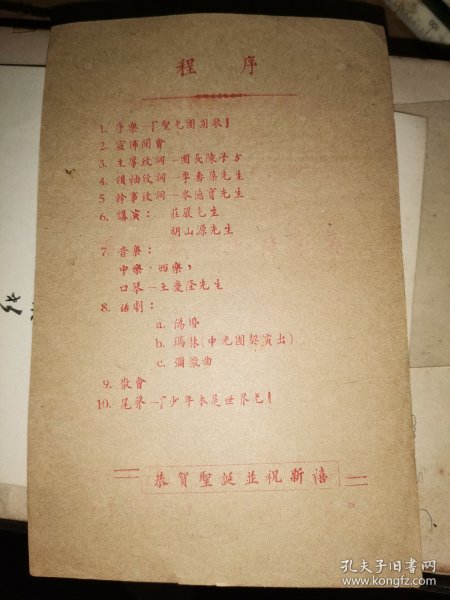 程 序
1. 序樂—「聖光團團歌」
2. 宣佈開會
3. 主席致詞—團長陳子方
4. 領袖致詞—李壽葆先生
5. 幹事致詞—岑德寶先生
6. 講演: 莊嚴先生
胡山源先生
7. 音樂:
中樂、西樂,
口琴—王慶隆先生
8. 話劇:
a. 偽婚
b. (中光團契演出)
c. 彌撒曲
9. 散會
10. 尾聲—「少年本是世界光」
恭賀聖誕並祝新禧
孔夫子旧书网
www.kongfz.com